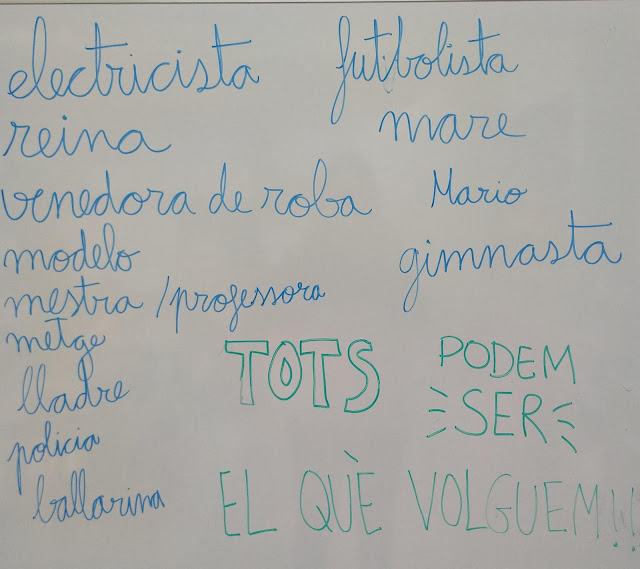 electricista
reina
venedora de roba
modelo
mestra / professora
metge
lladre
policia
ballarina
futbolista
mare
Mario
gimnasta
TOTS PODEM
SER
EL QUÈ VOLGUEM!!!